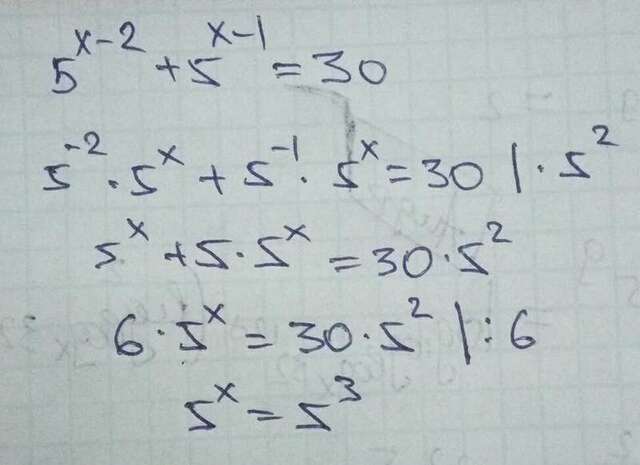 5^{x-2} + 5^{x-1} = 30
5^{-2} · 5^x + 5^{-1} · 5^x = 30 | · 5^2
5^x + 5 · 5^x = 30 · 5^2
6 · 5^x = 30 · 5^2 | : 6
5^x = 5^3